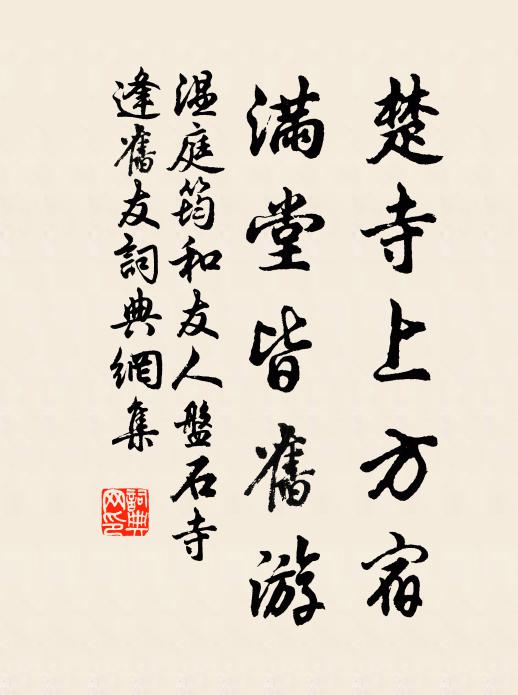 楚寺上方宿
滿堂皆舊游
温庭筠和友人盤石寺
逢舊友詞典網集
詞典
网印